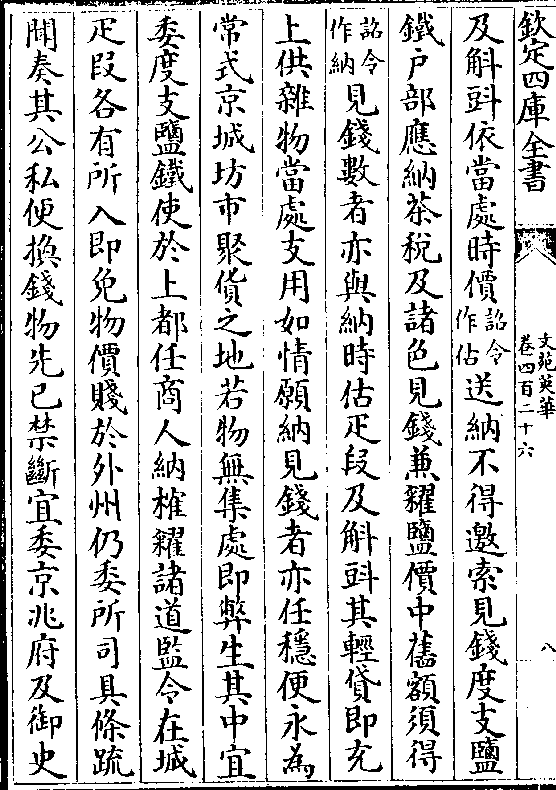 欽定四庫全書
文苑英華
卷四百二十六
八
及斛㪷依當處時價詔令作估送納不得邀索見錢度支鹽
鐵户部應納茶税及諸色見錢兼糴鹽價中舊額須得
詔令作納見錢數者亦與納時估疋段及斛㪷其輕貨即充
上供雜物當處支用如情願納見錢者亦任穩便永為
常式京城坊市聚貨之地若物無集處即弊生其中宜
委度支鹽鐵使於上都任商人納榷糴諸道監令在城
疋叚各有所入即免物價賤於外州仍委所司具條疏
聞奏其公私便換錢物先已禁斷宜委京兆府及御史